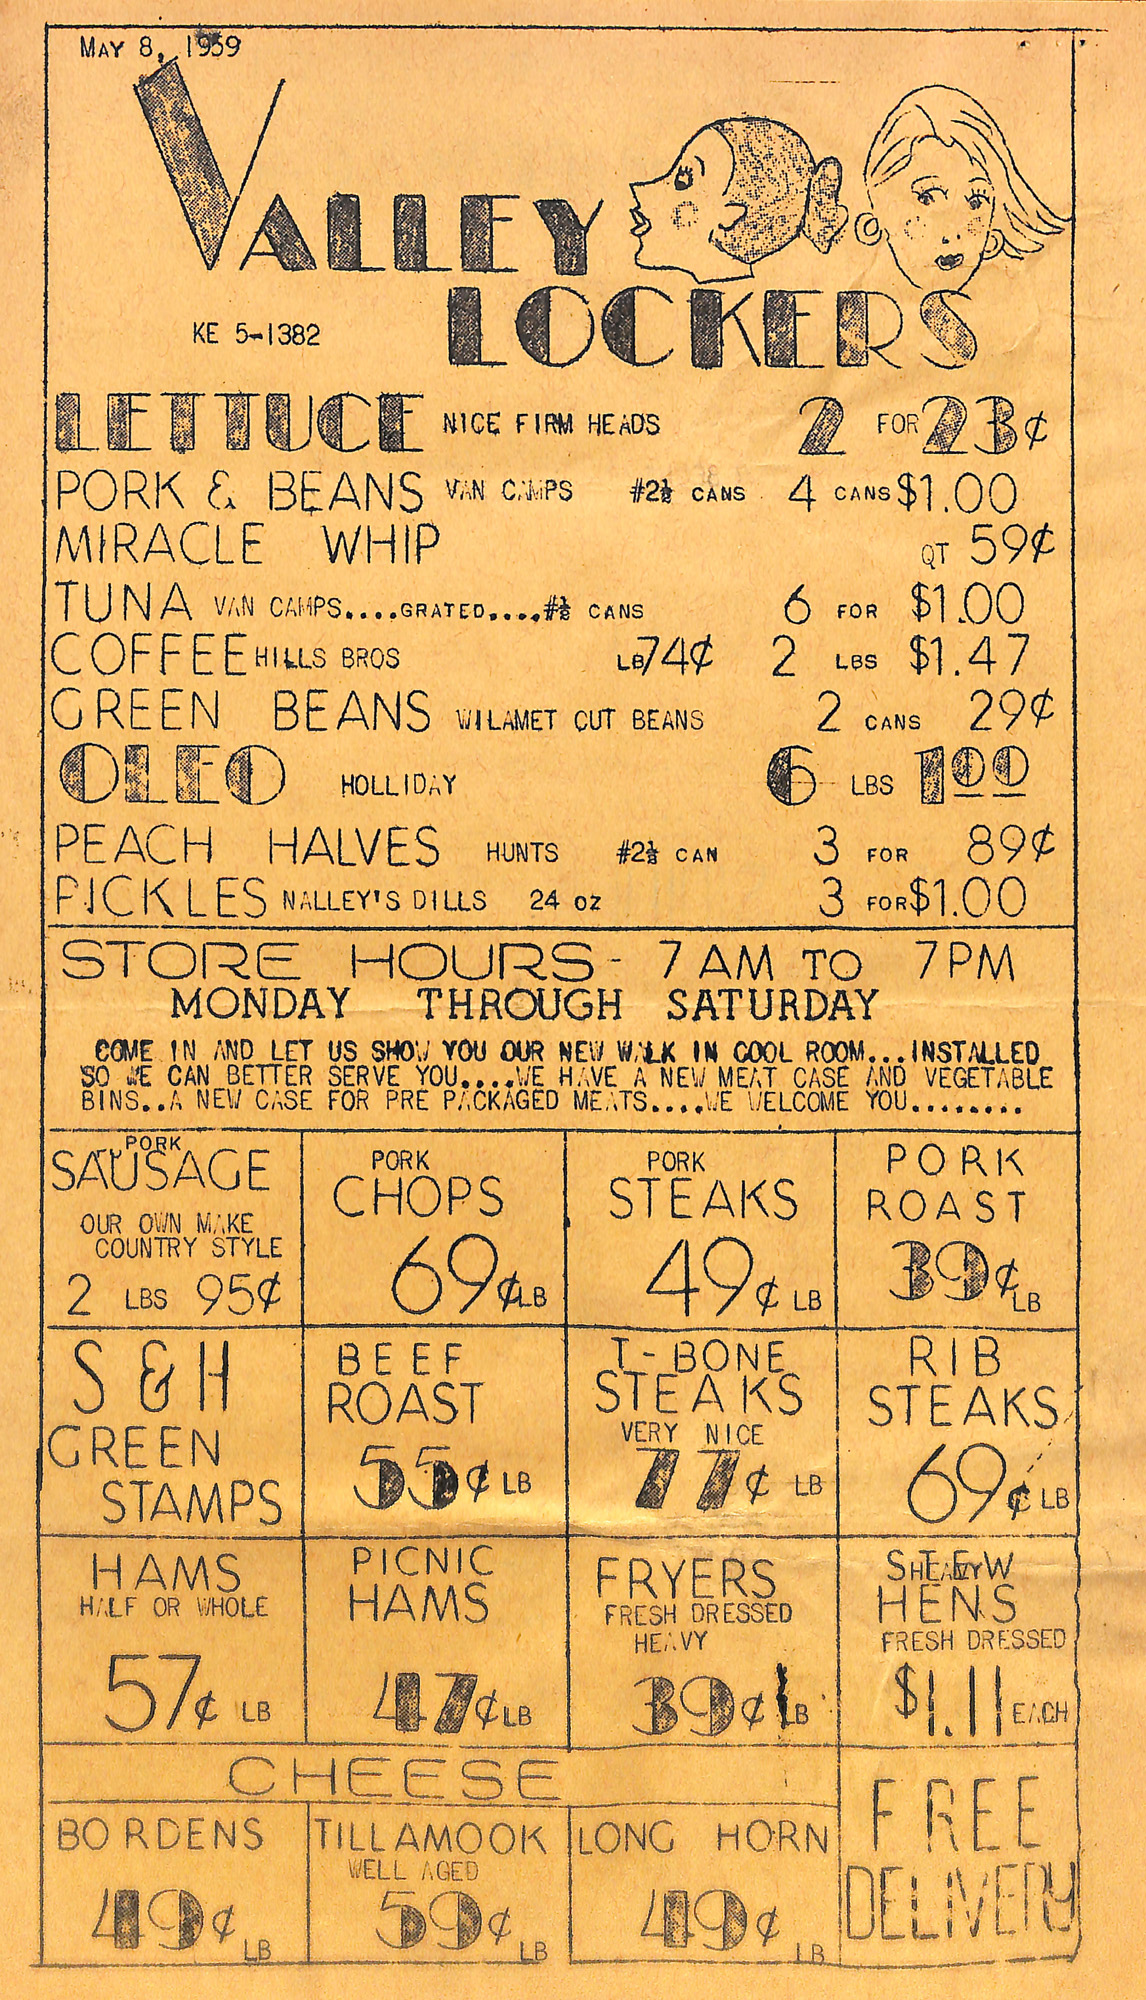 MAY 8, 1959
VALLEY
LOCKERS
KE 5-1382
LETTUCE NICE FIRM HEADS 2 FOR 23¢
PORK & BEANS VAN CAMPS #2½ CANS 4 CANS $1.00
MIRACLE WHIP QT 59¢
TUNA VAN CAMPS....GRATED....#½ CANS 6 FOR $1.00
COFFEE HILLS BROS LB 74¢ 2 LBS $1.47
GREEN BEANS WILAMET CUT BEANS 2 CANS 29¢
OLEO HOLLIDAY 6 LBS 1.00
PEACH HALVES HUNTS #2½ CAN 3 FOR 89¢
PICKLES NALLEY'S DILLS 24 OZ 3 FOR $1.00
STORE HOURS- 7 AM TO 7PM
MONDAY THROUGH SATURDAY
COME IN AND LET US SHOW YOU OUR NEW WALK IN COOL ROOM...INSTALLED
SO WE CAN BETTER SERVE YOU....WE HAVE A NEW MEAT CASE AND VEGETABLE
BINS..A NEW CASE FOR PRE PACKAGED MEATS....WE WELCOME YOU........
PORK
SAUSAGE
OUR OWN MAKE
COUNTRY STYLE
2 LBS 95¢
PORK
CHOPS
69¢ LB
PORK
STEAKS
49¢ LB
PORK
ROAST
39¢ LB
S & H
GREEN
STAMPS
BEEF
ROAST
55¢ LB
T-BONE
STEAKS
VERY NICE
77¢ LB
RIB
STEAKS
69¢ LB
HAMS
HALF OR WHOLE
57¢ LB
PICNIC
HAMS
47¢ LB
FRYERS
FRESH DRESSED
HEAVY
39¢ LB
STEW
HEAVY
HENS
FRESH DRESSED
$1.11 EACH
CHEESE
BORDENS
49¢ LB
TILLAMOOK
WELL AGED
59¢ LB
LONG HORN
49¢ LB
FREE
DELIVERY